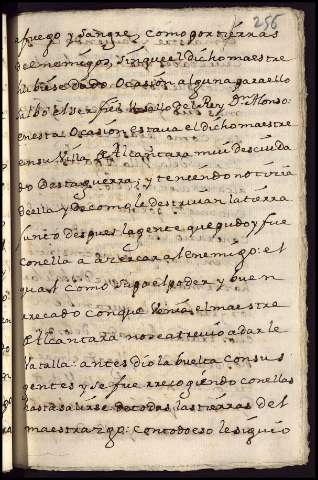 256
a fuego y sangre, como por tierras
de enemigos, sin que el dicho maestre
hubiese dado ocasión alguna para ello
salbo el ser fiel vasallo del Rey Dn Alonso:
en esta ocasión estava el dicho maestre
en su villa de Alcantara mui descuida
do de esta guerra; y teniendo noticia
de ella y de como le destruian la tierra
junto despues la gente que pudo y fue
con ella a acercar al enemigo: el
qual como supo el poder y buen
recado con que venia el maestre
de Alcantara no se atrevio a dar le
batalla: antes dio la buelta con sus
gentes y se fue recogiendo con ellas
hasta salirse de todas las tierras del
maestrazgo: con todo eso le siguio